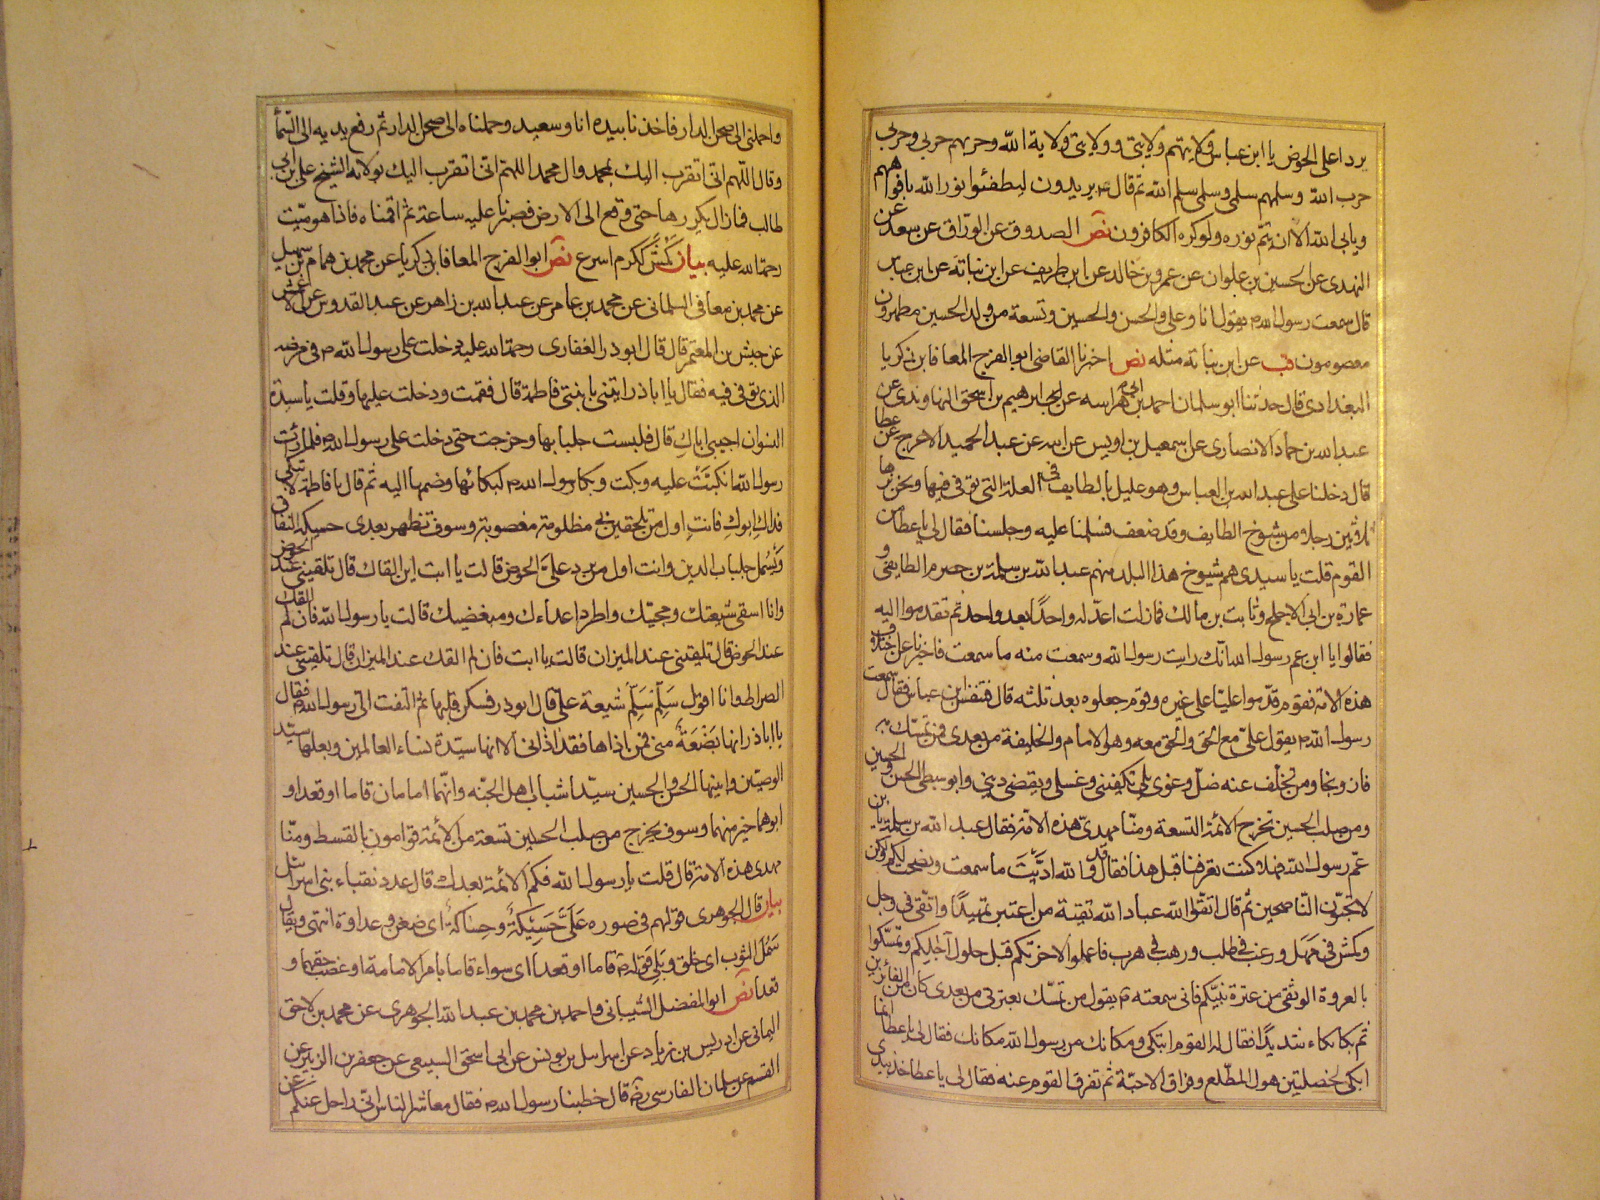 يردا على الحوض يا ابن عباس ولايتهم ولايتى وولايتى ولاية الله وحربهم حربى وحربى
حرب الله وسلمهم سلمى وسلمى سلم الله ثم قال ع يريدون ليطفئوا نور الله بافواههم
ويابى الله الا ان يتم نوره ولو كره الكافرون نص الصدوق عن الوراق عن سعد عن
النهدى عن الحسين بن علوان عن عمرو بن خالد عن ابن طريف عن ابن نباته عن ابن عباس
قال سمعت رسول الله ص يقول انا وعلى والحسن والحسين وتسعة من ولد الحسين مطهرون
معصومون قب عن ابن نباته مثله نص اخبرنا القاضى ابو الفرج المعافا بن زكريا
البغدادى قال حدثنا ابو سليمان احمد بن ابى هراسه عن ابراهيم بن اسحق النهاوندى عن
عبد الله بن حماد الانصارى عن اسمعيل بن اويس عن ابيه عن عبد الحميد الاعرج عن عطا
قال دخلنا على عبد الله بن العباس وهو عليل بالطايف فى العلة التى توفى فيها ونحن زها
ثلثين رجلا من شيوخ الطايف وقد ضعف فسلمنا عليه وجلسنا فقال لى يا عطا من
القوم قلت يا سيدى هم شيوخ هذا البلد منهم عبد الله بن سلمة بن حصرم الطايفى و
عمارة بن ابى الاجلح وثابت بن مالك فما زلت اعد له واحدا بعد واحد ثم تقدموا اليه
فقالوا يا ابن عم رسول الله انك رايت رسول الله وسمعت منه ما سمعت فاخبرنا عن اختلاف
هذه الامة فقوم قدموا عليا على غيره وقوم جعلوه بعد ثلثه قال فتنفس ابن عباس فقال سمعت
رسول الله ص يقول على مع الحق والحق معه وهو الامام والخليفة من بعدى فمن تمسك به
فاز ونجا ومن تخلف عنه ضل وغوى بلى يكفننى وغسلنى ويقضى دينى وابو سبطى الحسن والحسين
ومن صلب الحسين تخرج الائمة التسعة ومنا مهدى هذه الامة فقال عبد الله بن سلمة يا بن
عم رسول الله فهلا كنت تعرفنا قبل هذا فقال قد والله اديت ما سمعت ونصحت لكم ولكن
لا تحبون الناصحين ثم قال اتقوا الله عباد الله تقية من اعتبر تمهيدا واتقى فى وجل
وكمش فى مهل ورغب فى طلب ورهب فى هرب فاعملوا لاخرتكم قبل حلول آجالكم وتمسكوا
بالعروة الوثقى من عترة نبيكم فانى سمعته ص يقول من تمسك بعترتى من بعدى كان من الفائزين
ثم بكا بكاء شديدا فقال له القوم اتبكى ومكانك من رسول الله مكانك فقال لى يا عطا انما
ابكى لخصلتين هول المطلع وفراق الاحبة ثم تفرق القوم عنه فقال لى يا عطا خذ بيدى
واحملنى الى صحن الدار فاخذنا بيده انا وسعيد وحملناه الى صحن الدار ثم رفع يديه الى السماء
وقال اللهم انى اتقرب اليك بمحمد وال محمد اللهم انى اتقرب اليك بولاية الشيخ على بن ابى
طالب فما زال يكررها حتى وقع الى الارض فصبرنا عليه ساعة ثم اقمناه فاذا هو ميت
رحمة الله عليه بيان كمش ككرم اسرع نص ابو الفرج المعافا بن زكريا عن محمد بن همام بن سهيل
عن محمد بن معافى السلمانى عن محمد بن عامر عن عبد الله بن زاهر عن عبد القدوس عن الاعمش
عن حبش بن المعتمر قال قال ابو ذر الغفارى رحمة الله عليه دخلت على رسول الله ص فى مرضه
الذى توفى فيه فقال يا اباذر ايتنى بابنتى فاطمة قال فقمت ودخلت عليها وقلت يا سيدة
النسوان اجيبى اباك قال فلبست جلبابها وخرجت حتى دخلت على رسول الله ص فلما رات
رسول الله انكبت عليه وبكت وبكا رسول الله ص لبكائها وضمها اليه ثم قال يا فاطمة لا تبكى
فداك ابوك فانت اول من تلحقين بى مظلومة مغصوبة وسوف تظهر بعدى حسيكة النفاق
ويسمل جلباب الدين وانت اول من يرد على الحوض قالت يا ابت اين القاك قال تلقينى عند الحوض
وانا اسقى شيعتك ومحبيك واطرد اعداءك ومبغضيك قالت يا رسول الله فان لم القك
عند الحوض قال تلقينى عند الميزان قالت يا ابت فان لم القك عند الميزان قال تلقينى عند
الصراط وانا اقول سلم سلم شيعة على قال ابو ذر فسكن قلبها ثم التفت الى رسول الله ص فقال
يا اباذر انها بضعة منى فمن اذاها فقد اذانى الا انها سيدة نساء العالمين وبعلها سيد
الوصيين وابنيها الحسن والحسين سيدا شباب اهل الجنه وانهما امامان قاما او قعدا و
ابوهما خير منهما وسوف يخرج من صلب الحسين تسعة من الائمة قوامون بالقسط ومنا
مهدى هذه الامة قال قلت يا رسول الله فكم الائمة بعدك قال عدد نقباء بنى اسرائيل
بيان قال الجوهرى قولهم فى صدره على حسيكة وحساكة اى ضغن وعداوة انتهى ويقال
سمل الثوب اى خلق وبلى قوله ص قاما او قعدا اى سواء قاما بامر الامامة او غصب حقهما و
قعدا نص ابو المفضل الشيبانى واحمد بن محمد بن عبد الله الجوهرى عن محمد بن لاحق
اليمانى عن ادريس بن زياد عن اسرائيل بن يونس عن ابى اسحق السبيعى عن جعفر بن الزبير عن
القسم عن سلمان الفارسى رض قال خطبنا رسول الله ص فقال معاشر الناس انى راحل عنكم عن